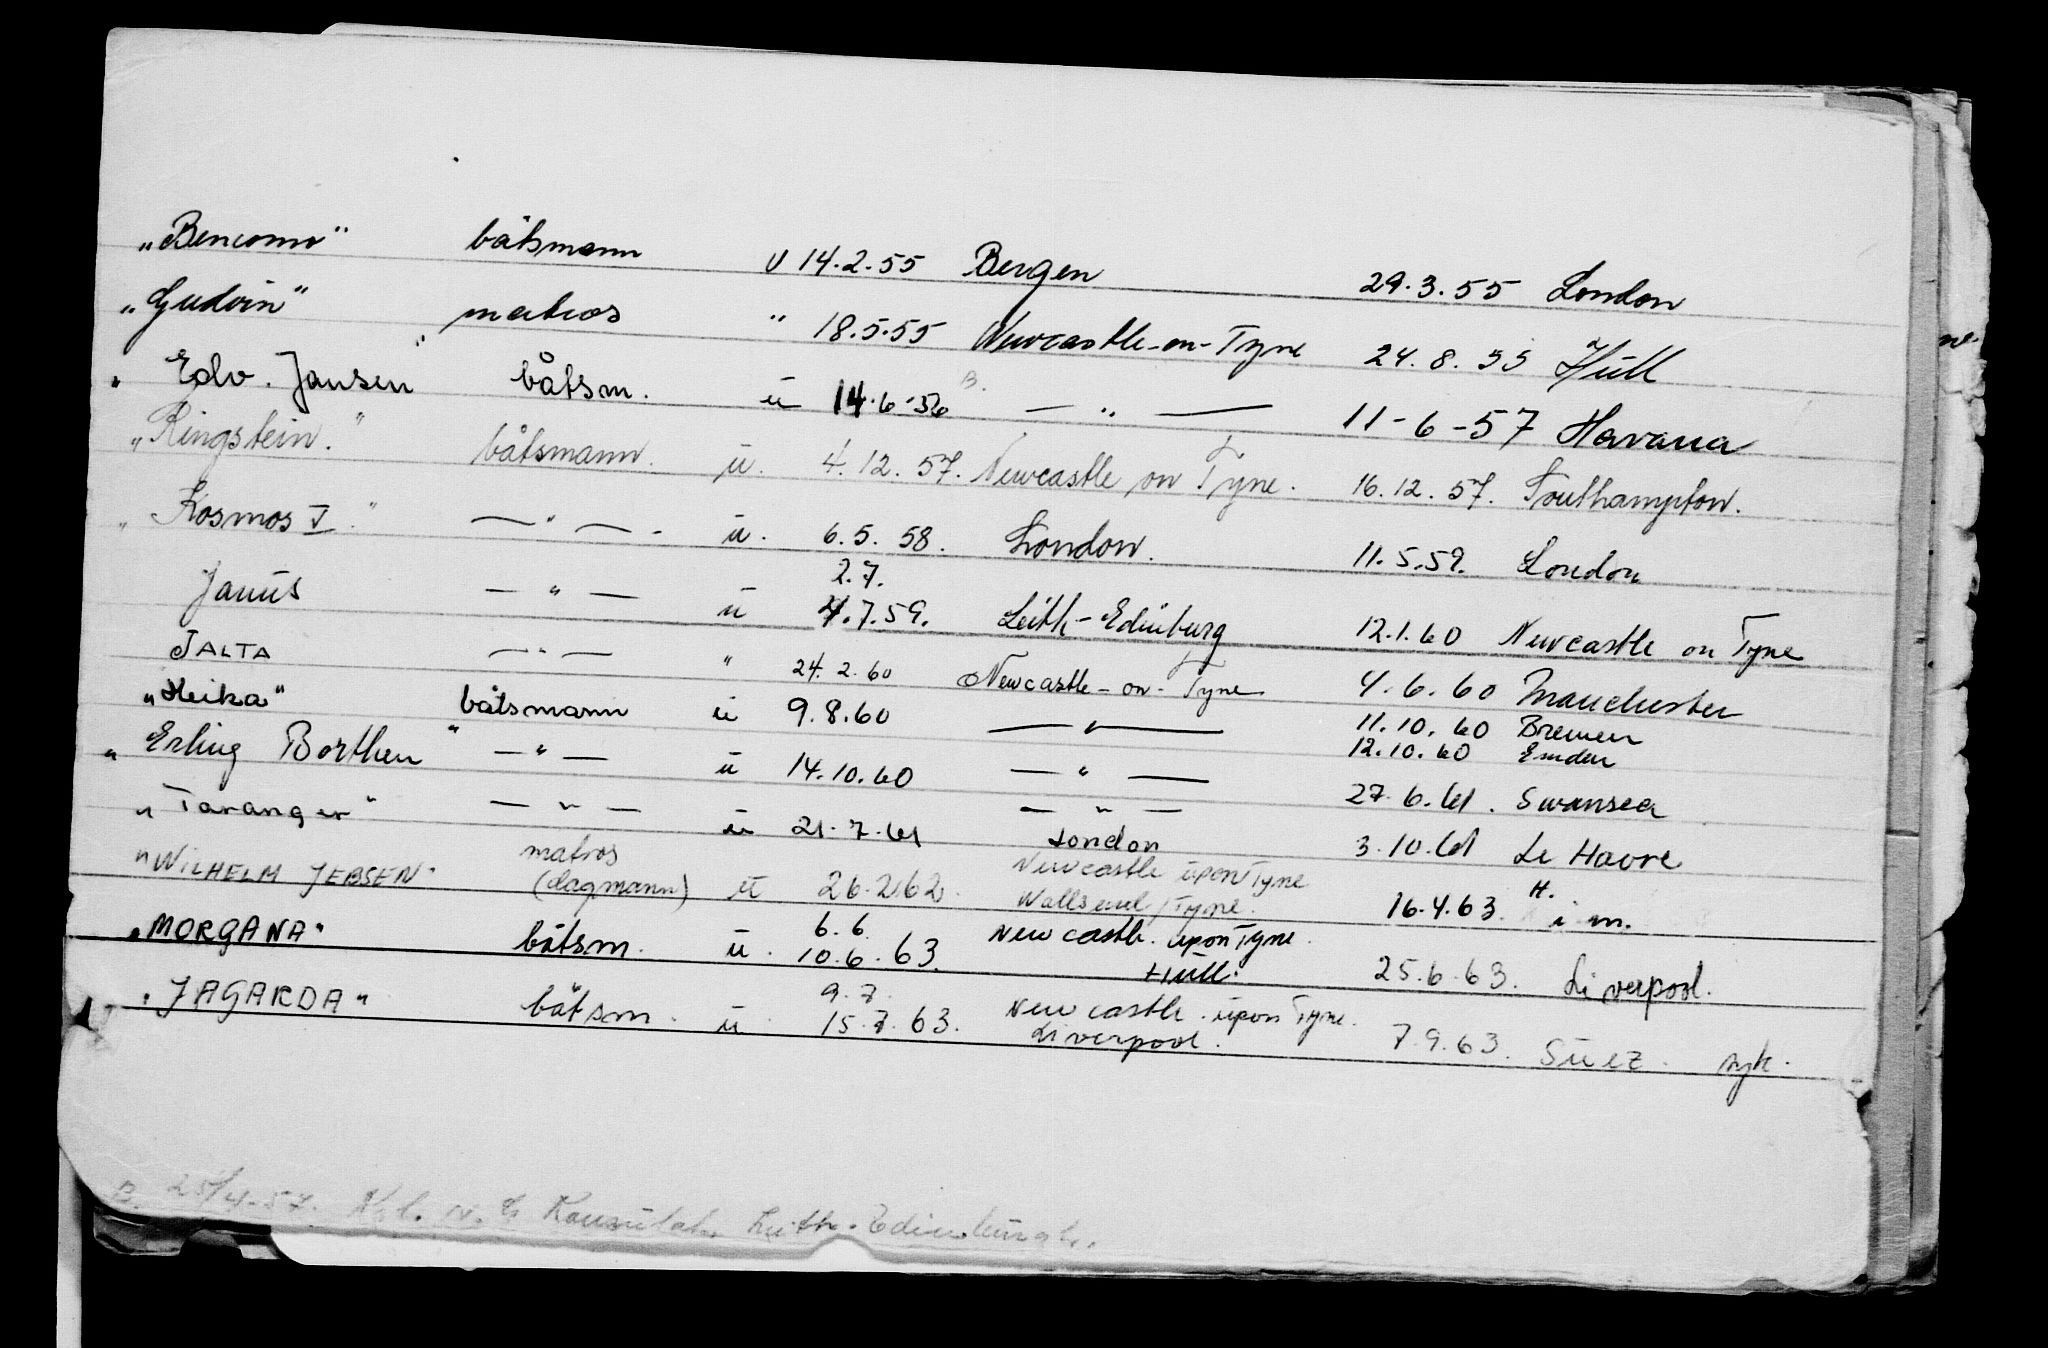 „Bencomo" båtsmann u 14.2.55 Bergen 29.3.55 London
„Gudvin" matros " 18.5.55 Newcastle-on-Tyne 24.8.55 Hull
„Edv. Jansen" båtsm. u 14.6-56 B. — " — 11-6-57 Havana
„Ringstein." båtsmann. u. 4.12.57. Newcastle on Tyne. 16.12.57. Southampton.
„Kosmos V." — " — . u. 6.5.58. London. 11.5.59. London
2.7.
Janus — " — u 4.7.59. Leith-Edinburg 12.1.60 Newcastle on Tyne
JALTA — " — " 24.2.60 Newcastle-on-Tyne 4.6.60 Manchester
„Heika" båtsmann u 9.8.60 — " — 11.10.60 Bremen
12.10.60 Emden
„Erling Borthen" — " — u 14.10.60 — " — 27.6.61. Swansea
„Taranger" — " — u 21.7.61 — " —
London 3.10.61 Le Havre
„WILHELM JEBSEN" matros Newcastle upon Tyne
(dagmann) u 26.2.62. Wallsend/Tyne. 16.4.63. H. i m.
„MORGANA" båtsm. u. 6.6. Newcastle. upon Tyne.
10.6.63. Hull. 25.6.63. Liverpool.
„JAGARDA" båtsm. u 9.7. Newcastle. upon Tyne.
15.7.63. Liverpool. 7.9.63. Suez. syk.
B. 25/4-57. Kgl. N. G. Konsulat, Leith-Edinburgh.